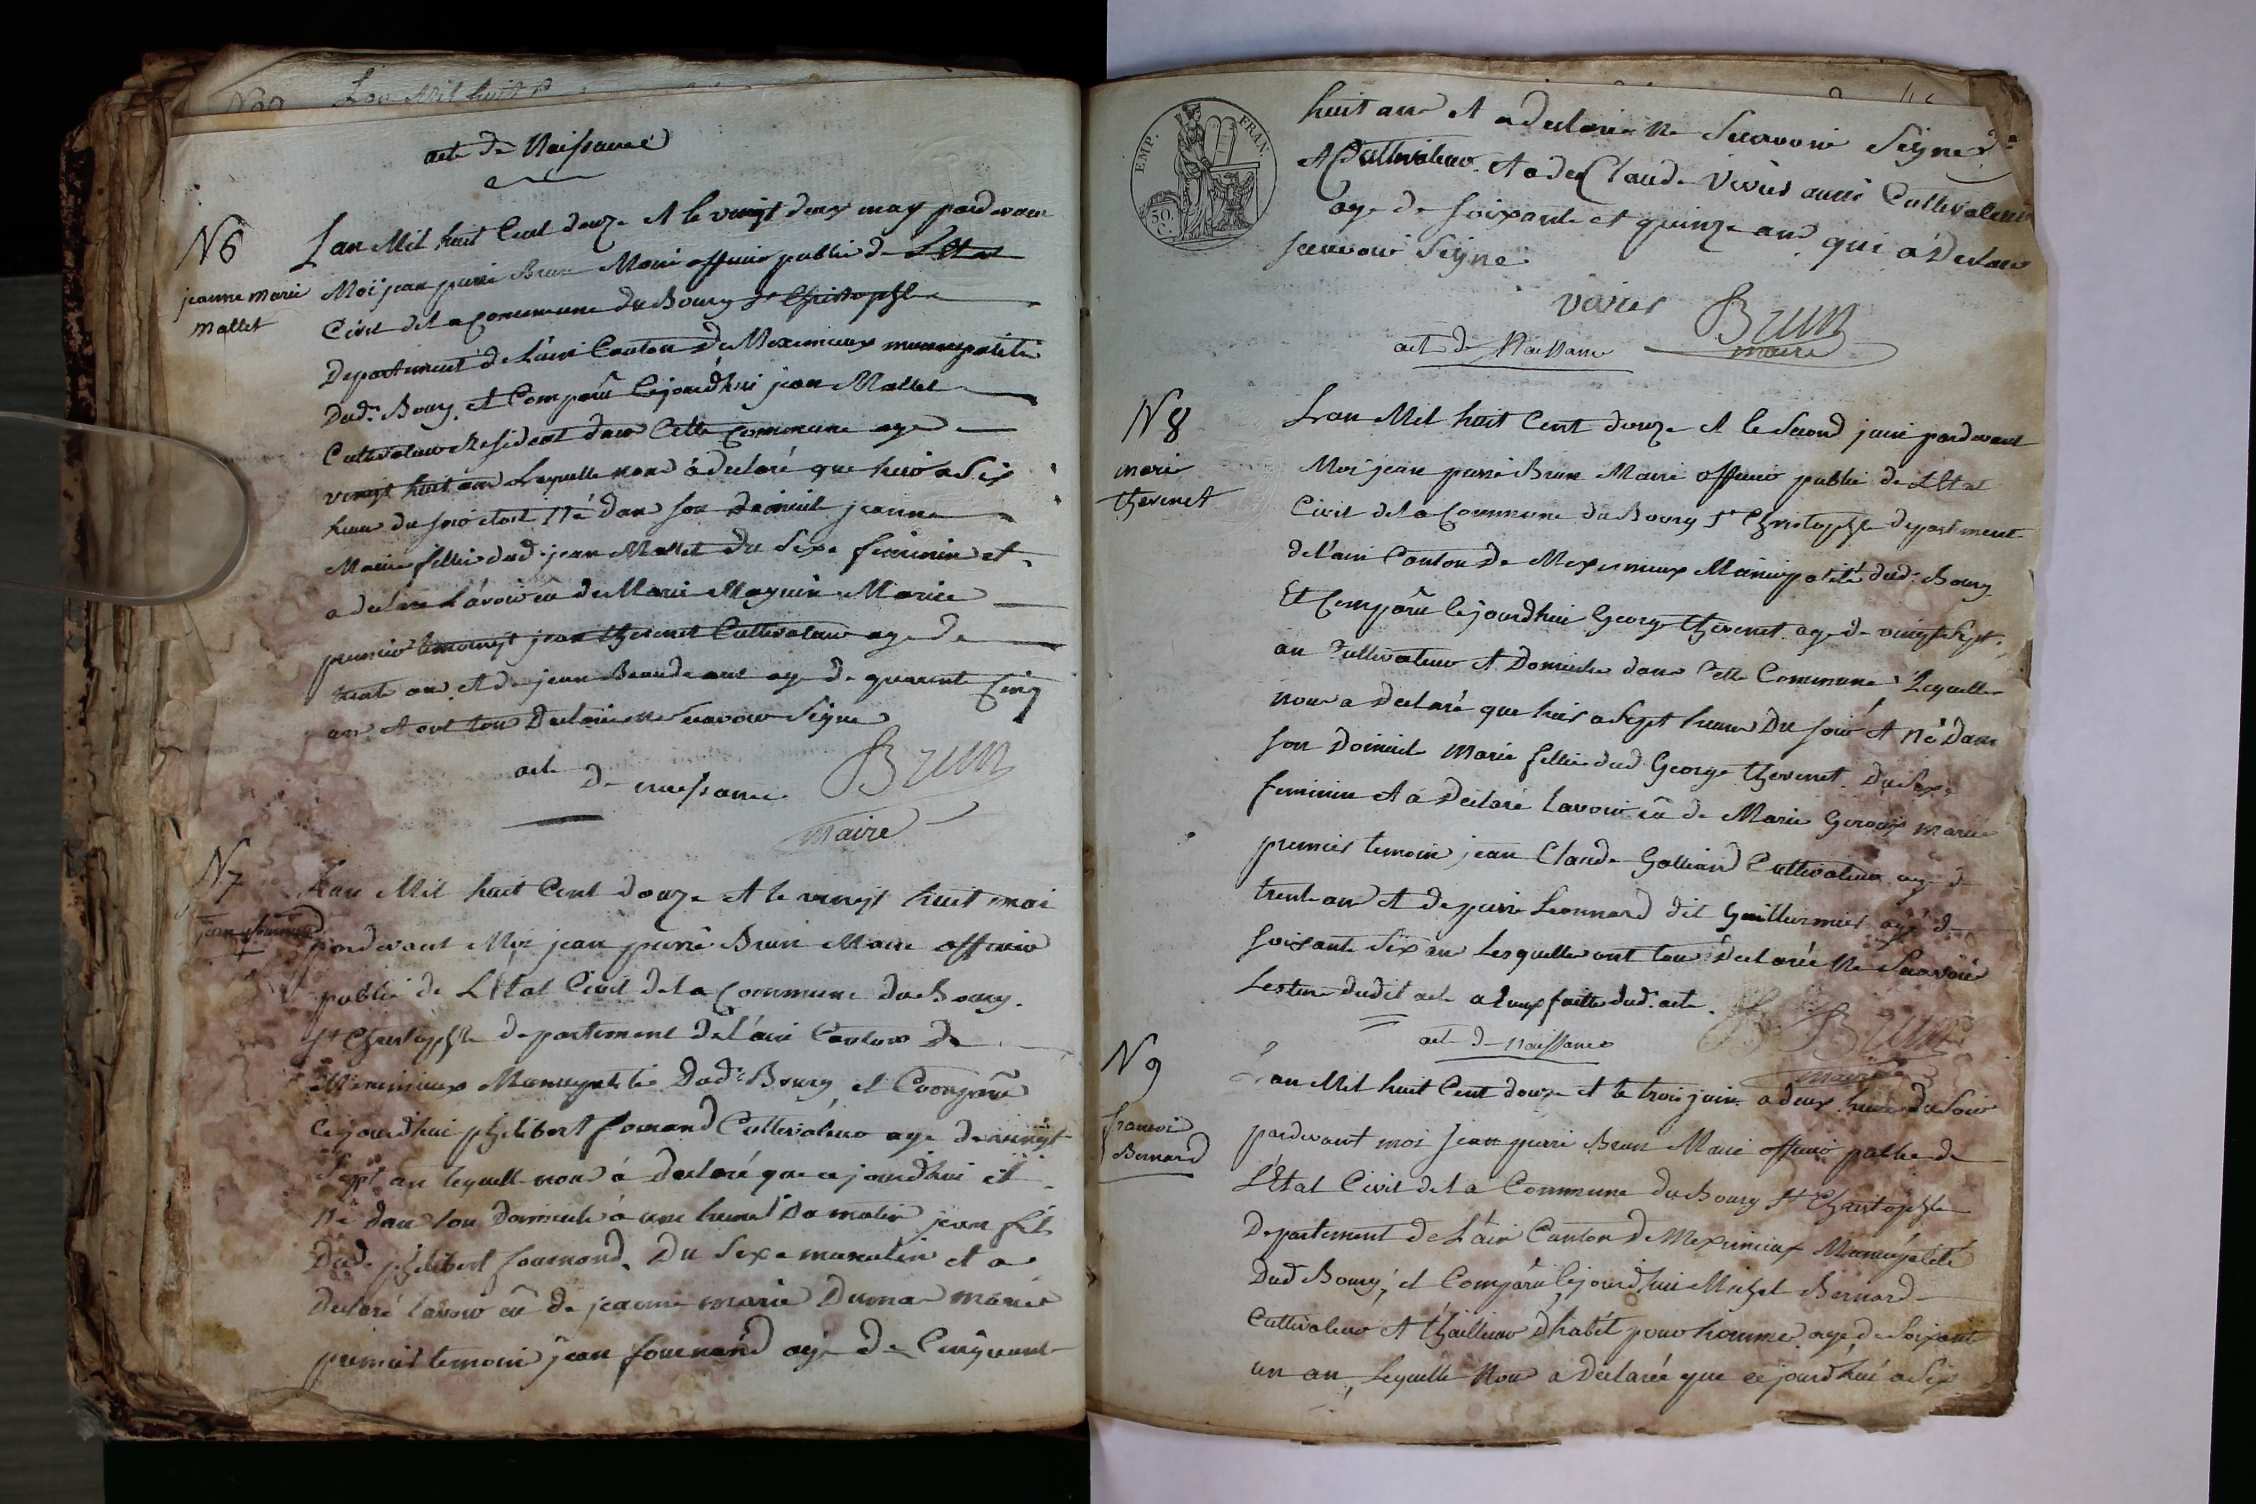 acte de Naissance
N 6
jeanne marie
mallet
Lan Mil huit Cent douze et le vingt deux may pardevant
Moi jean pierre Brun Maire officier public de Letat
Civil de la Commune du Bourg St Christophle
Departement de L'ain Canton de Meximieux municipalité
Dud. Bourg. et Comparû Cejourdhui jean Mallet
Cultivateur Resident dans Cette Commune age
vingt huit ans Lequelle nous à declaré que hier a Six
heure du soir etoit Né dans son domicile jeanne
Marie fillie dud. jean Mallet du Sexe feminin et
a declaré L'avoir eu de Marie Magnin Mariée
premier temoingt jean thevenet Cultivateur age de
trente ans et de jean Beaude age de quarente Cinq
ans et ont tous Declaré ne Scavoir Signe
Brun
maire
acte
de naissance
N 7
jean fournand
Lan Mil huit Cent douze et le vingt huit mai
pardevant Moi jean pierre Brun Maire officier
public de L'Etat Civil de la Commune du Bourg.
St Christophle departement de L'ain Canton de
Meximieux Municipalité Dud. Bourg et Comparû
Cejourdhui philibert fournand Cultivateur age de vingt
Sept an lequelle nous á declaré que cejourdhui est
Né dans son Domicile á une heure Du matin jean fils
Dud. philibert fournand. Du Sexe masculin et a
Declaré lavoir eû de jeanne marie Dumas mariés
premier temoin jean fournand agé de Cinquante
EMP. FRAN.
50.
C.
huit ans et a declaré ne Scavoir Signe
et Cultivateur. et a de Claude Vivier aussi Cultivateur
age de soixante et quinze ans qui a Declaré
scavoir Signe
vivier Brun
maire
acte de Naissance
N 8
marie
thevenet
Lan Mil huit Cent douze et le Second juin pardevant
Moi jean pierre Brun Maire officier public de L'Etat
Civil de la Commune du Bourg St Christophle departement
de l'ain Canton de Meximieux Municipalité dud. Bourg
Et Comparû Cejourdhui George thevenet age de vingt Sept
an Cultivateur et Domicilié dans Cette Commune Lequelle
nous a declaré que hier a Sept heure Du soir et Né Dans
son Domicile marie fillie dud George thevenet. Du Sexe
feminin et a Declaré lavoir eû de Marie mariée
premier temoin jean Claude Galliand Cultivateur age de
trente an et de pierre Leonnard dit Guillermier agé de
soixante Six an Lesquelle ont tous declarée Ne Scavoir
Lecture dudit acte a eux faitte dud. acte.
Brun
maire
acte de naissance
N 9
francois
Bernard
Lan Mil huit Cent douze et le trois juin a deux heure Du Soir
pardevant moi Jean pierre Brun Maire officier public de
L'Etat Civil de la Commune du Bourg St Christophle
Departement de L'ain Canton de Meximieux Municipalité
Dud Bourg, et Comparu Cejourdhui Michel Bernard
Cultivateur et thailleur dhabit pour homme. agé de Soixante
un an, Lequelle Nous a Declarée que cejourdhui a Six